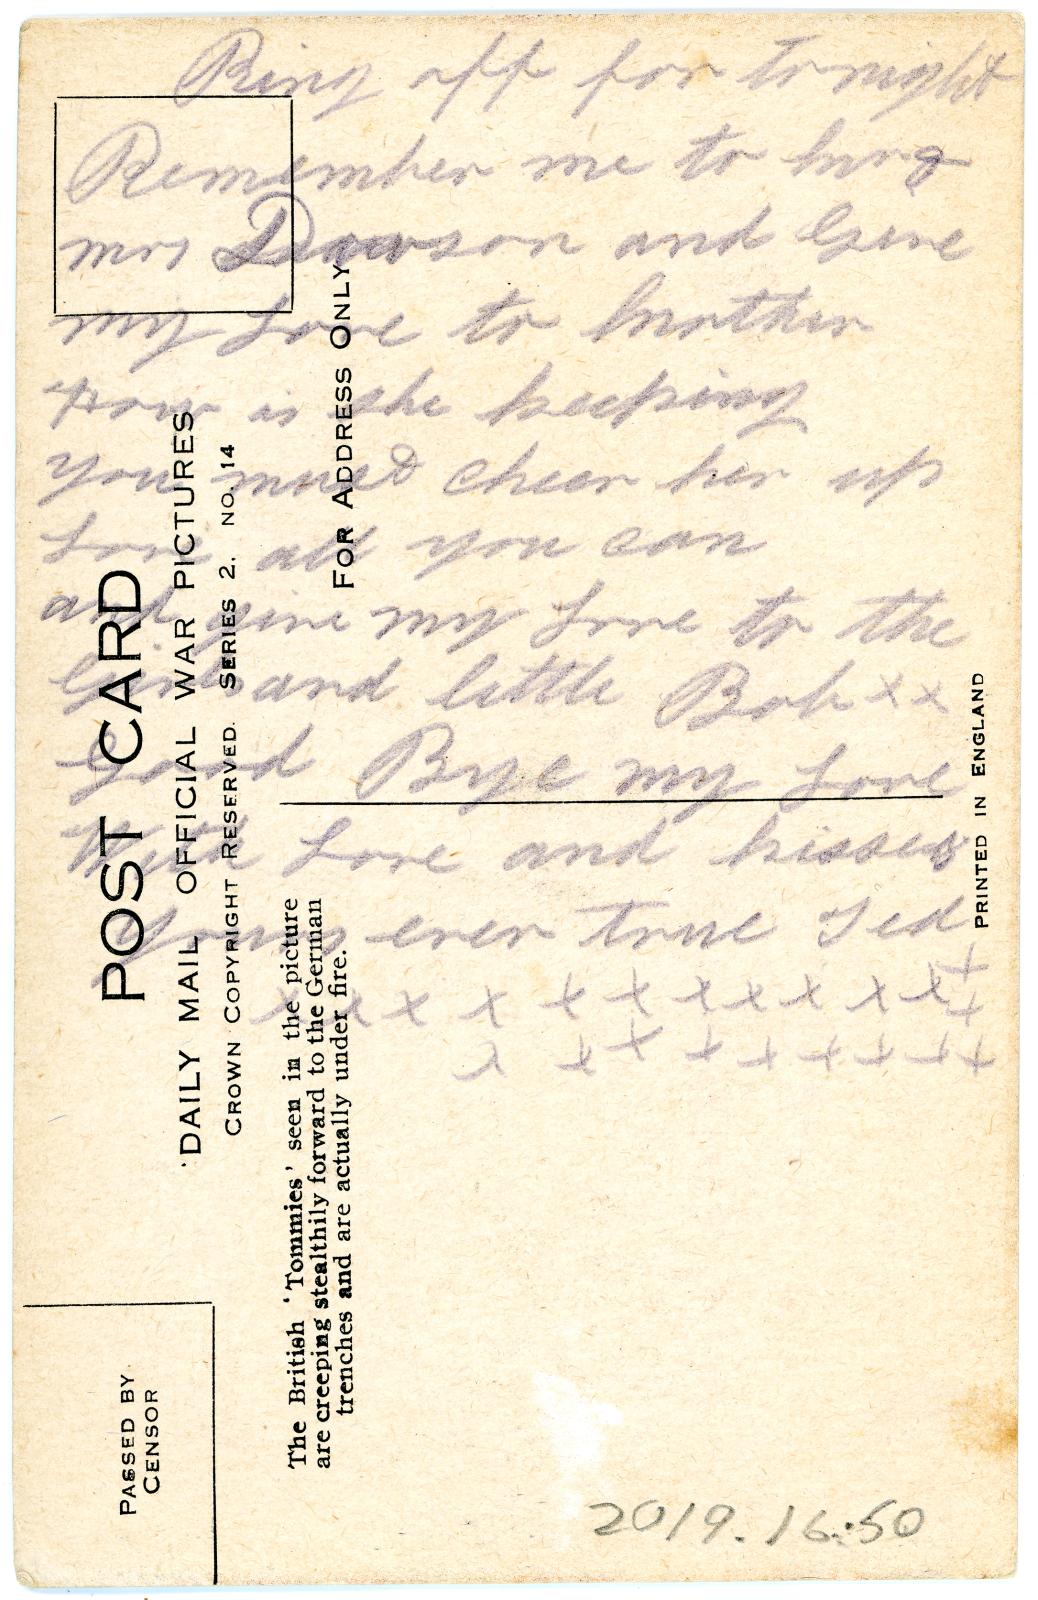 Ring off for tonight
Remember me to
mrs Dawson and Give
my Love to Mother
How is she keeping
you must cheer her up
Love all you can
and give my Love to the
Girls and little Bob x x
Good Bye my Love
With Love and kisses
yours ever true Ted
x x x x x x x x x x x x
x x x x x x x x x
POST CARD
'DAILY MAIL OFFICIAL WAR PICTURES
CROWN COPYRIGHT RESERVED. SERIES 2. NO. 14
FOR ADDRESS ONLY
The British 'Tommies' seen in the picture
are creeping stealthily forward to the German
trenches and are actually under fire.
PASSED BY
CENSOR
PRINTED IN ENGLAND
2019.16.50